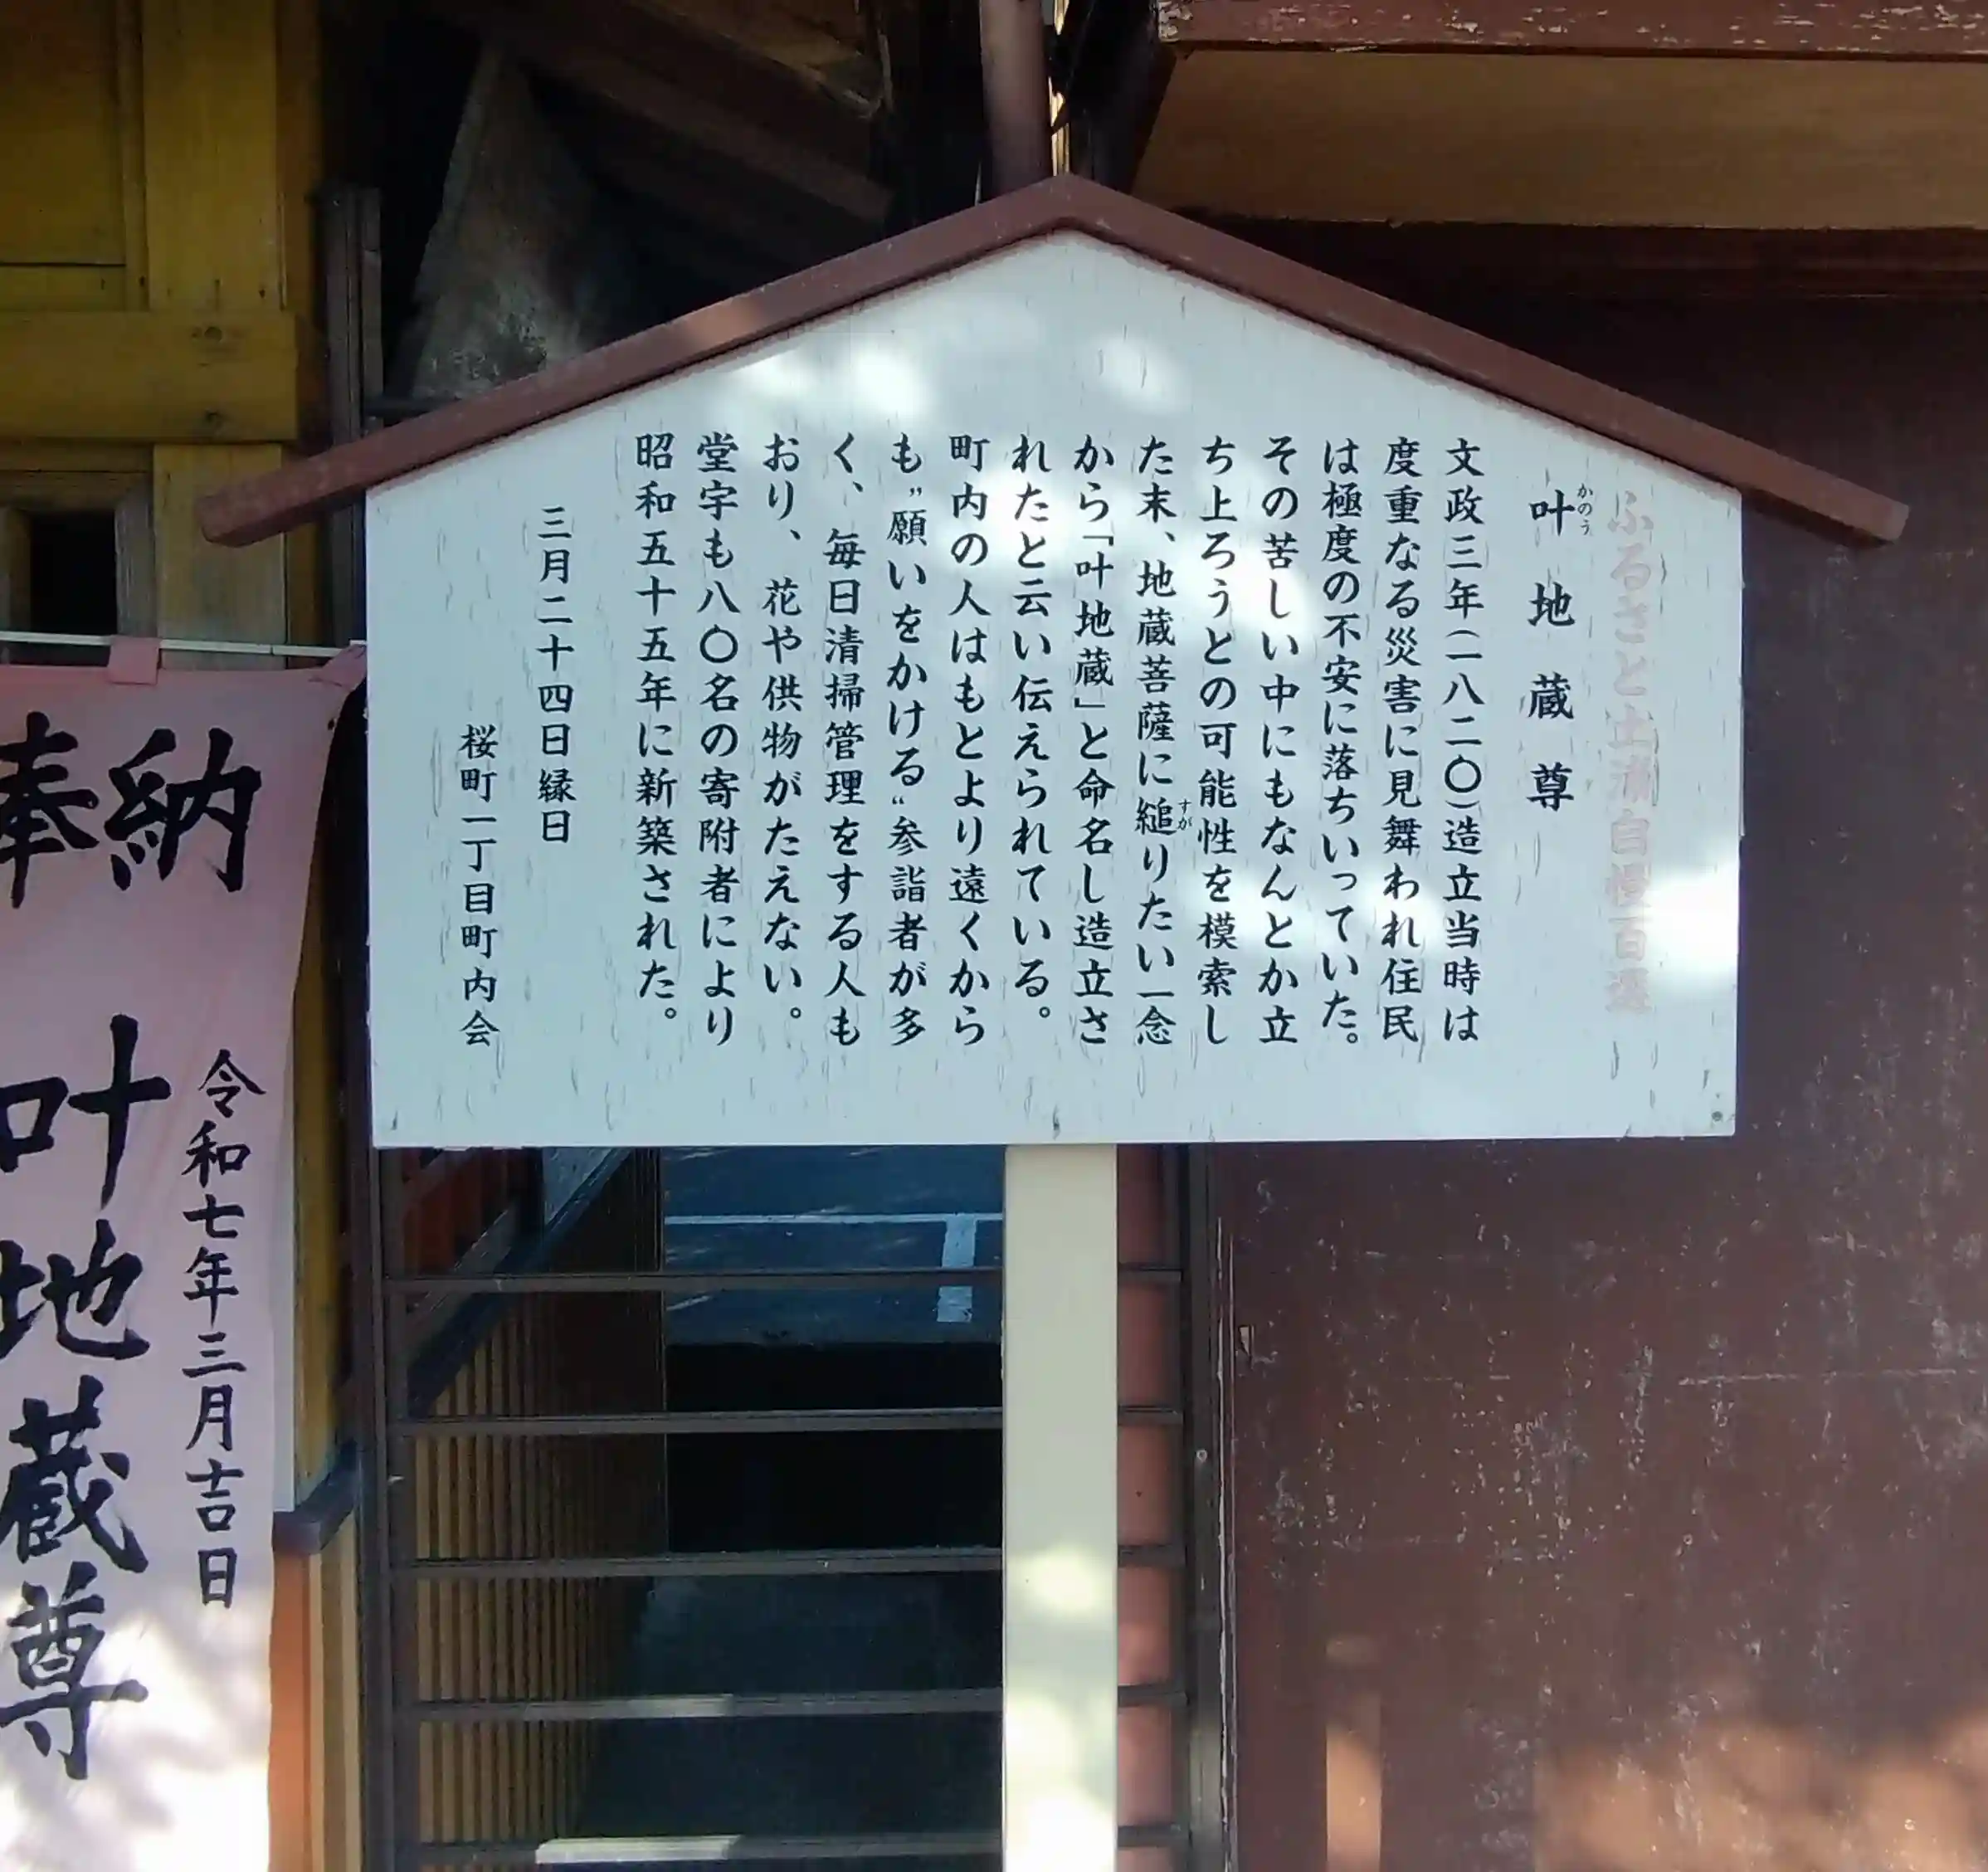 ふるさと土浦自慢百選
かのう
叶地蔵尊
文政三年(一八二〇)造立当時は
度重なる災害に見舞われ住民
は極度の不安に落ちいっていた。
その苦しい中にもなんとか立
ち上ろうとの可能性を模索し
た末、地蔵菩薩に縋りたい一念
すが
から「叶地蔵」と命名し造立さ
れたと云い伝えられている。
町内の人はもとより遠くから
も〝願いをかける〟参詣者が多
く、毎日清掃管理をする人も
おり、花や供物がたえない。
堂宇も八〇名の寄附者により
昭和五十五年に新築された。
三月二十四日縁日
桜町一丁目町内会
奉納
叶地蔵尊
令和七年三月吉日